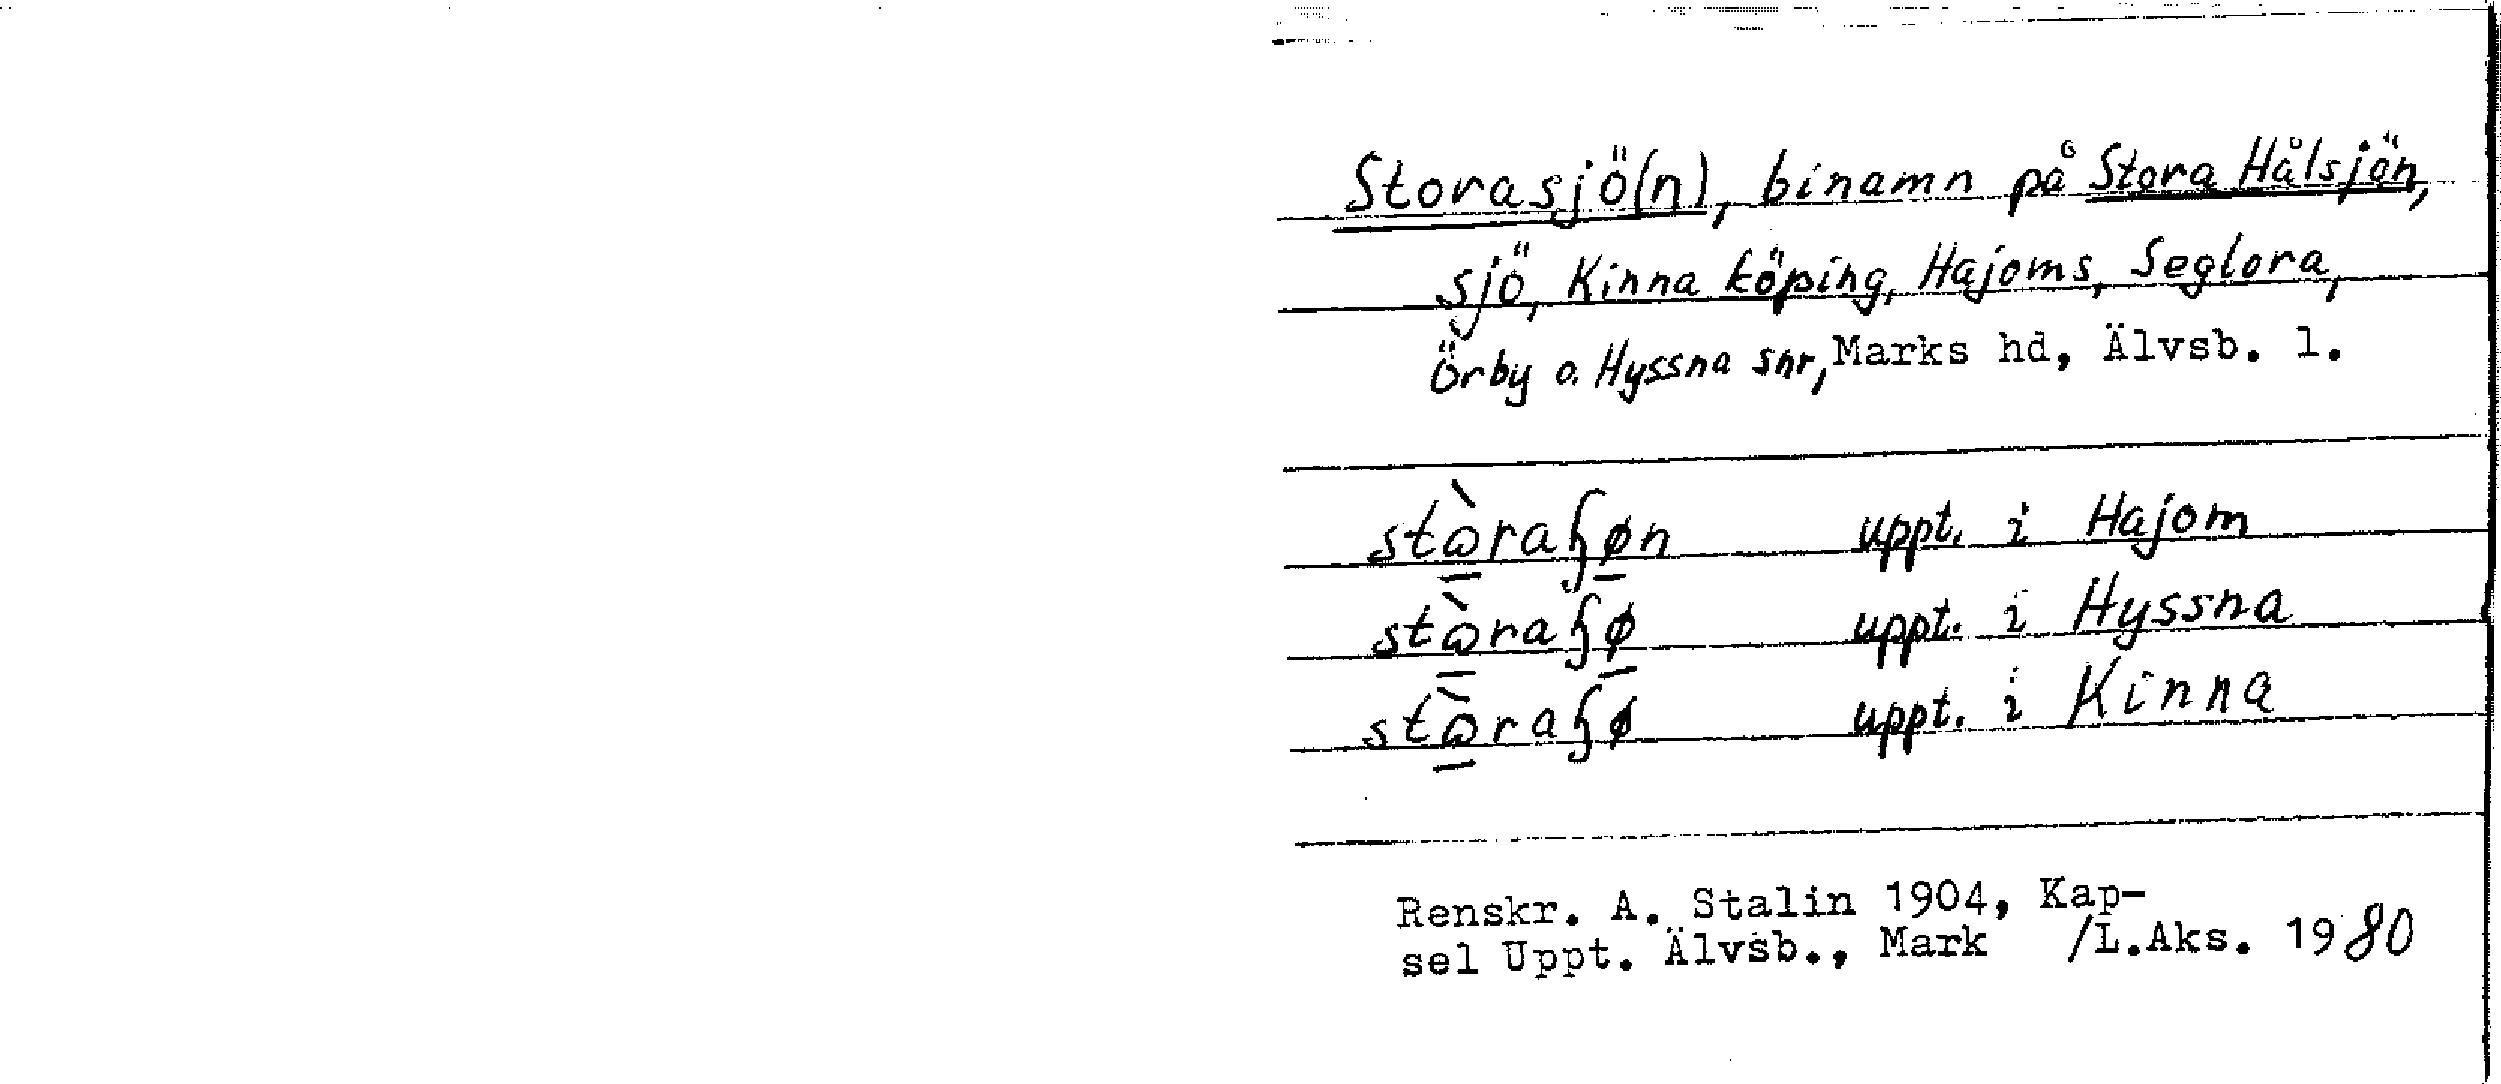 Storasjö(n), binamn på Stora Hålsjön,
sjö, Kinna köping, Hajoms, Seglora,
Örby o. Hyssna snr, Marks hd, Älvsb. l.
stɷ̱̀raɧø̱n uppt. i Hajom
stɷ̱̀raɧø̱ uppt. i Hyssna
stɷ̱̀raɧø uppt. i Kinna
Renskr. A. Stalin 1904, Kap-
sel Uppt. Älvsb., Mark /L.Aks. 1980